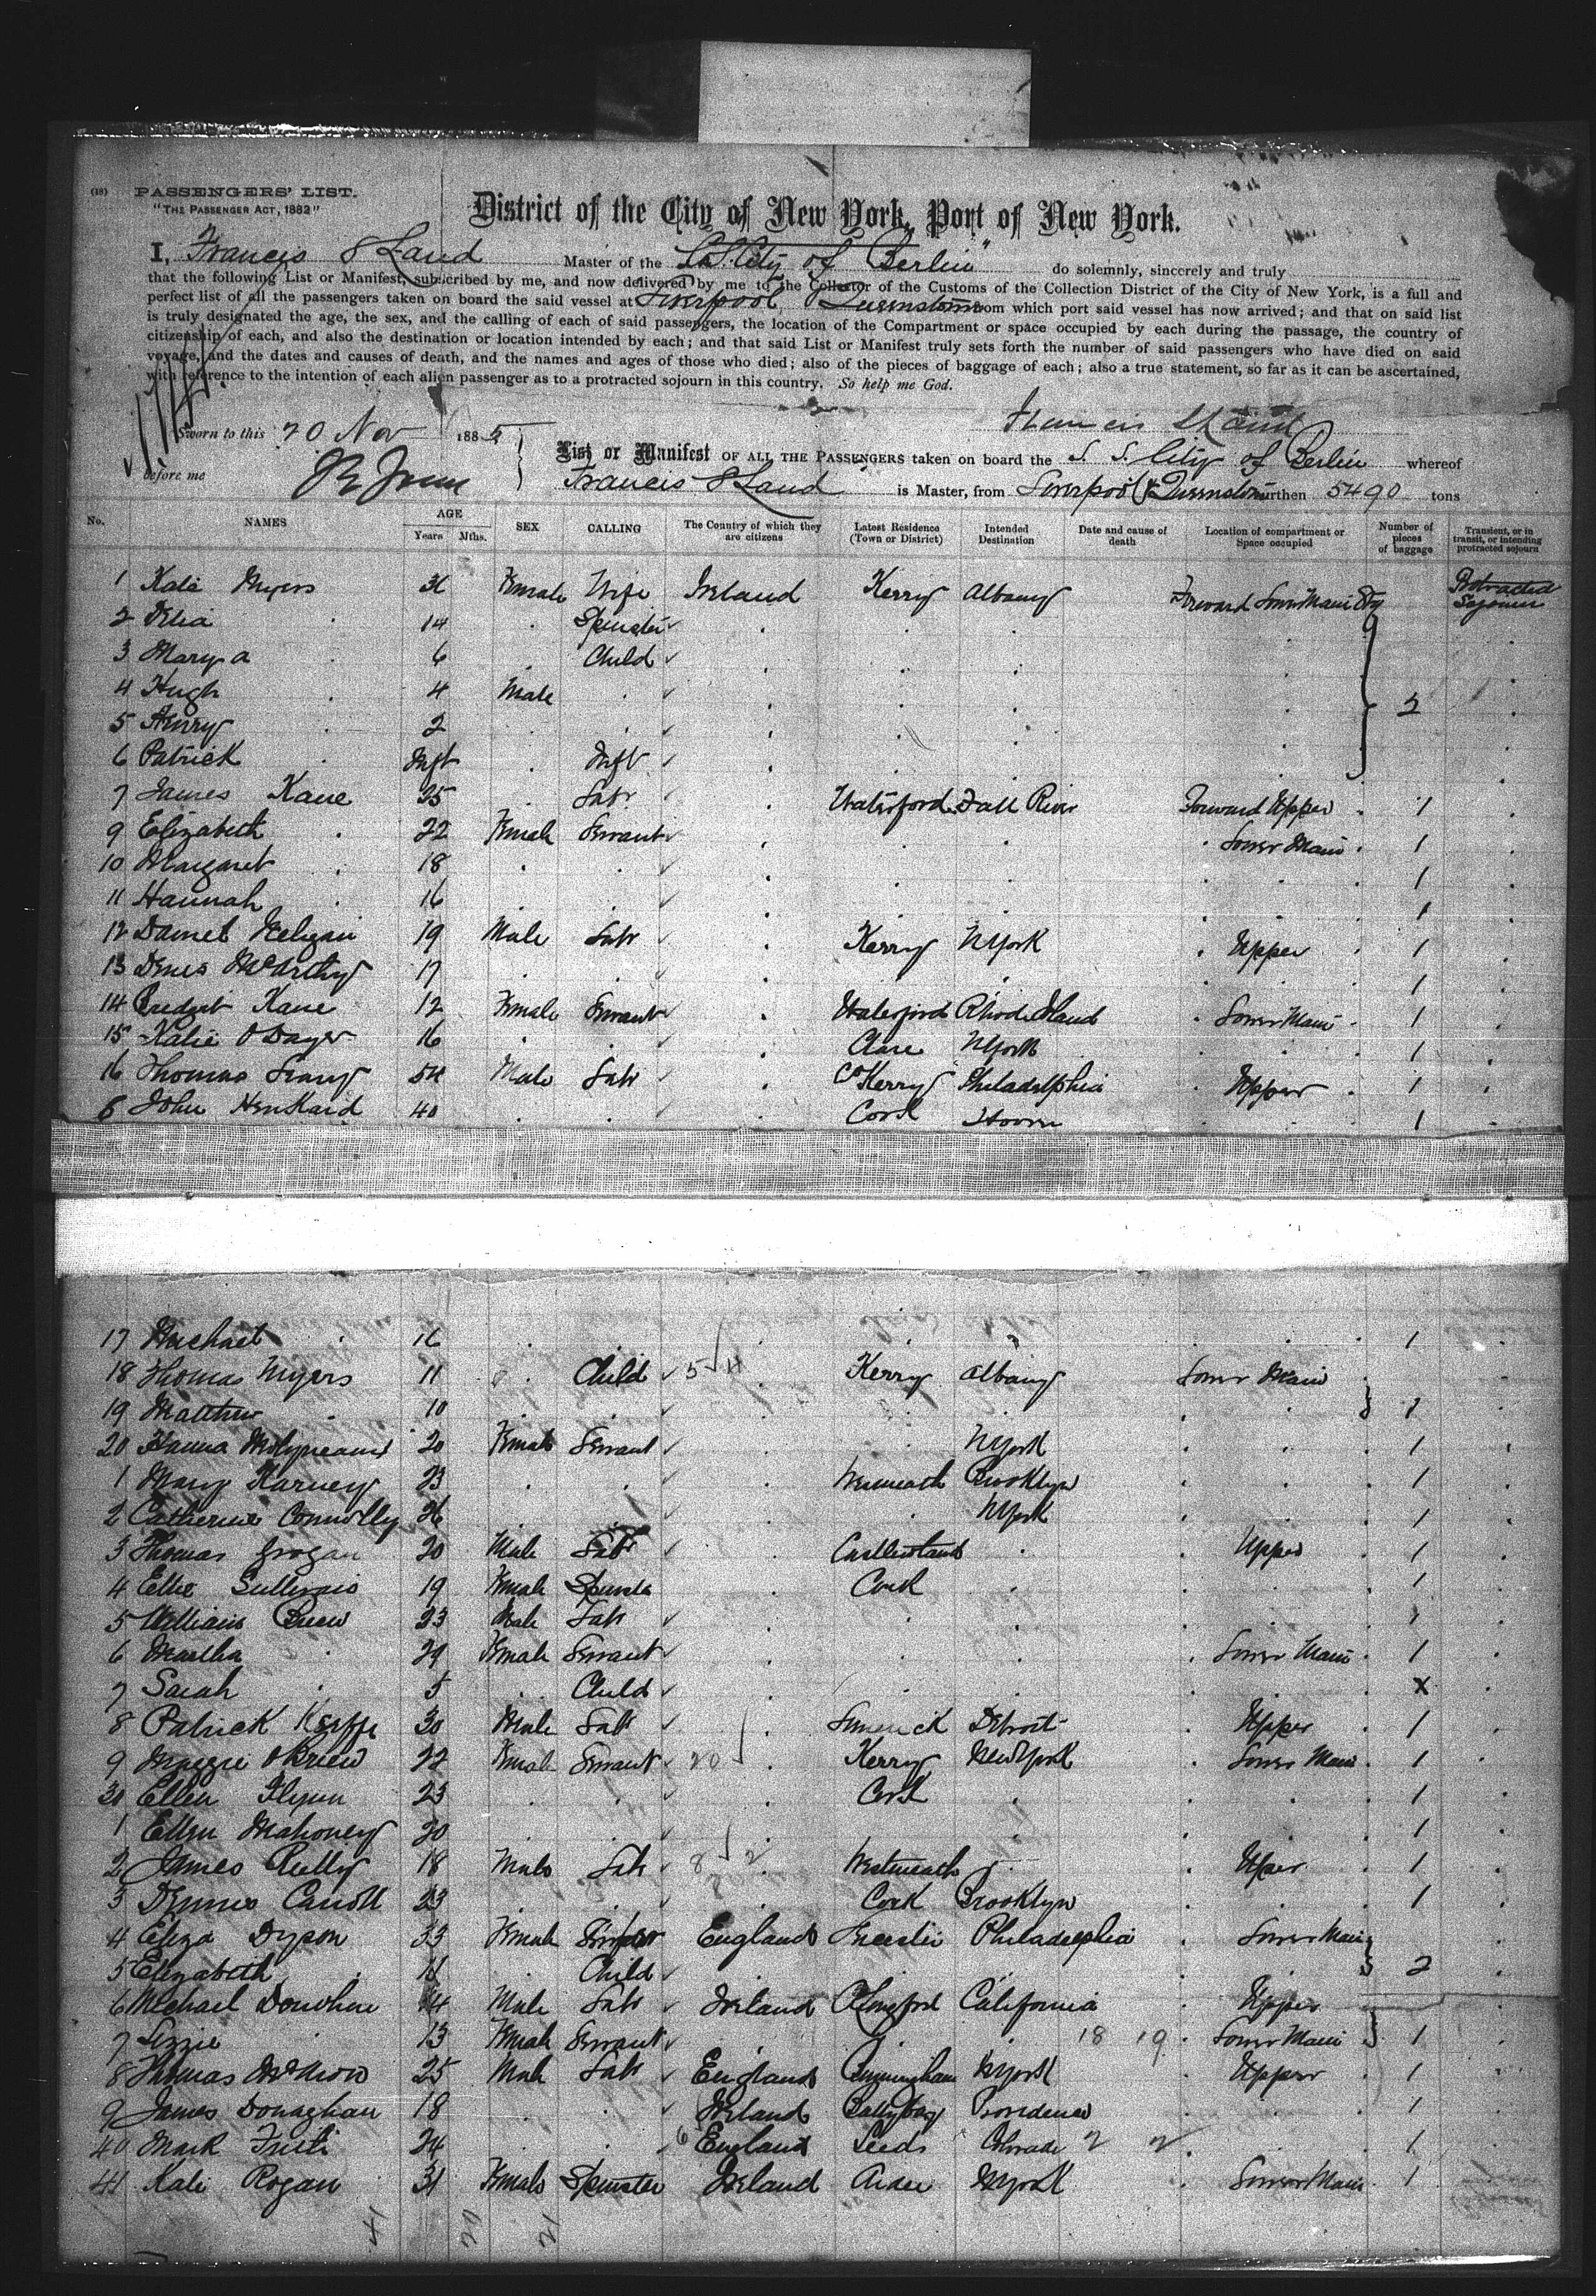 (18) PASSENGERS' LIST.
"THE PASSENGER ACT, 1882"
District of the City of New York, Port of New York.
I, Francis S Land Master of the S.S. City of Berlin" do solemnly, sincerely and truly
that the following List or Manifest, subscribed by me, and now delivered by me to the Collector of the Customs of the Collection District of the City of New York, is a full and
perfect list of all the passengers taken on board the said vessel at Liverpool, Queenstown from which port said vessel has now arrived; and that on said list
is truly designated the age, the sex, and the calling of each of said passengers, the location of the Compartment or space occupied by each during the passage, the country of
citizenship of each, and also the destination or location intended by each; and that said List or Manifest truly sets forth the number of said passengers who have died on said
voyage, and the dates and causes of death, and the names and ages of those who died; also of the pieces of baggage of each; also a true statement, so far as it can be ascertained,
with reference to the intention of each alien passenger as to a protracted sojourn in this country. So help me God.
Francis S Land
Sworn to this 20 Nov 1885
before me
List or Manifest OF ALL THE PASSENGERS taken on board the S. S. City of Berlin whereof
Francis S Land is Master, from Liverpool & Queenstown burthen 5490 tons
No. NAMES AGE Years Mths. SEX CALLING The Country of which they are citizens Latest Residence (Town or District) Intended Destination Date and cause of death Location of compartment or Space occupied Number of pieces of baggage Transient, or in transit, or intending protracted sojourn
1 Kate Myers 36 Female Wife Ireland Kerry Albany Forward Lower Main Protracted Sojourn
2 Delia 14 Spinster
3 Mary a 6 Child
4 Hugh 4 Male 2
5 Henry 2
6 Patrick Inft Inft
7 James Kane 25 Labr Waterford Fall River Forward Upper 1
9 Elizabeth 22 Female Servant Lower Main 1
10 Margaret 18 1
11 Hannah 16 1
12 Daniel Neligan 19 Male Labr Kerry NYork Upper 1
13 Denis McArthy 17 1
14 Bredget Kane 12 Female Servant Waterford Rhode Island Lower Main 1
15 Katie O'Dwyer 16 Clare NYork 1
16 Thomas Leary 54 Male Labr Co Kerry Philadelphia Upper 1
8 John 40 Cork 1
17 Michael 16 1
18 Thomas Myers 11 Child 5 4 Kerry Albany Lower Main
19 Matthew 10 1
20 Hanna Molyneaux 20 Female Servant NYork 1
1 Mary Harney 23 Westmeath Brooklyn 1
2 Catherine Connolly 26 NYork 1
3 Thomas Grogan 20 Male Labr Upper 1
4 Ellie Sullivan 19 Female Spinster Cork 1
5 William Brew 33 Male Labr 1
6 Martha 29 Female Servant Lower Main 1
7 Sarah 5 Child x
8 Patrick Keeffe 30 Male Labr Limerick Detroit Upper 1
9 Maggie OBrien 22 Female Servant 20 Kerry New York Lower Main 1
30 Ellen Flynn 23 Cork 1
1 Ellen Mahoney 20 1
2 James Reilly 18 Male Labr 8 2 Westmeath Upper 1
3 Dennis Carroll 23 Cork Brooklyn 1
4 Eliza Dyson 33 Female England Philadelphia Lower Main
5 Elizabeth 11 Child 2
6 Michael Donohue 14 Male Labr Ireland Longford California Upper
7 Lizzie 13 Female Servant 18 19 Lower Main 1
8 Thomas 25 Male Labr England Birmingham NYork Upper 1
9 James Donaghan 18 Ireland Ballybay Providence 1
40 Mark 24 6 England Leeds Colorado 2 2 1
41 Kate Rogan 31 Female Spinster Ireland Ardee NYork Lower Main 1
41 20 21